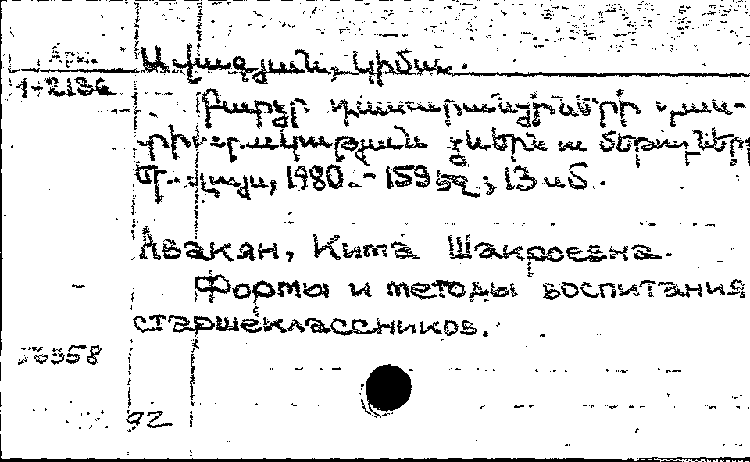 1-2136
Ավագյան, Կիմա.
Բարձր դասարանցիների դաս-
տիարակության ձևերն ու մեթոդները
Եր., Լույս, 1980.- 159 էջ; 13 սմ.
Авакян, Кима Шакроевна.
Формы и методы воспитания
старшеклассников.
92